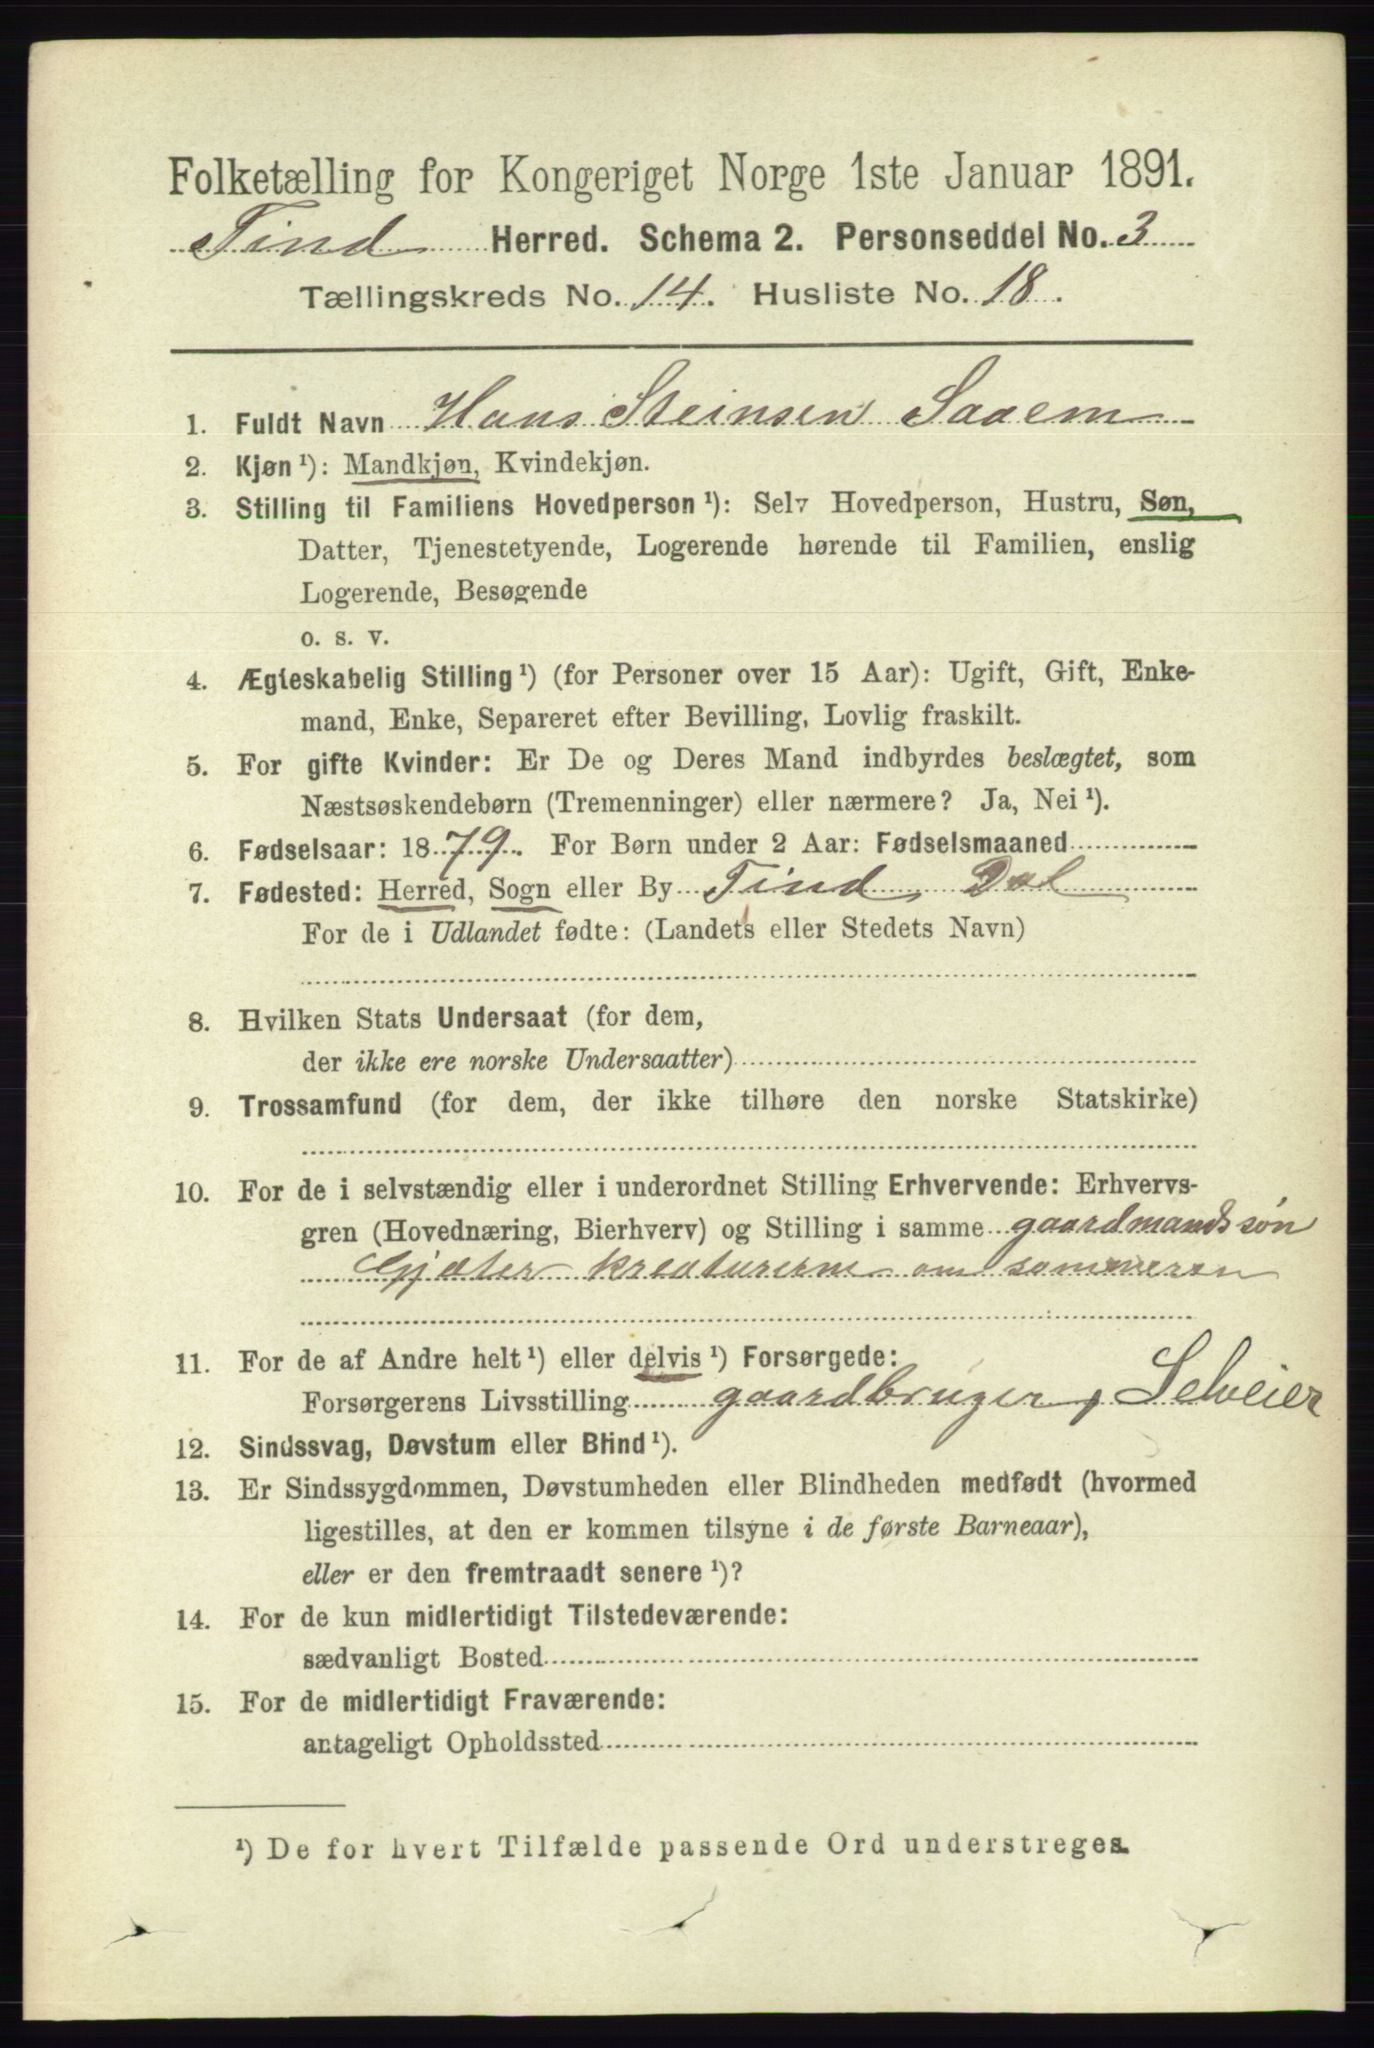 Folketælling for Kongeriget Norge 1ste Januar 1891.
Tind Herred. Schema 2. Personseddel No. 3
Tællingskreds No. 14. Husliste No. 18.
1. Fuldt Navn Hans Steinsen Saaem
2. Kjøn ¹): Mandkjøn, Kvindekjøn.
3. Stilling til Familiens Hovedperson ¹): Selv Hovedperson, Hustru, Søn,
Datter, Tjenestetyende, Logerende hørende til Familien, enslig
Logerende, Besøgende
o. s. v.
4. Ægteskabelig Stilling ¹) (for Personer over 15 Aar): Ugift, Gift, Enke-
mand, Enke, Separeret efter Bevilling, Lovlig fraskilt.
5. For gifte Kvinder: Er De og Deres Mand indbyrdes beslægtet, som
Næstsøskendebørn (Tremenninger) eller nærmere? Ja, Nei ¹).
6. Fødselsaar: 1879. For Børn under 2 Aar: Fødselsmaaned
7. Fødested: Herred, Sogn eller By Tind, Dal
For de i Udlandet fødte: (Landets eller Stedets Navn)
8. Hvilken Stats Undersaat (for dem,
der ikke ere norske Undersaatter)
9. Trossamfund (for dem, der ikke tilhøre den norske Statskirke)
10. For de i selvstændig eller i underordnet Stilling Erhvervende: Erhvervs-
gren (Hovednæring, Bierhverv) og Stilling i samme gaardmandssøn
Gjæter kreaturerne om sommeren
11. For de af Andre helt ¹) eller delvis ¹) Forsørgede:
Forsørgerens Livsstilling gaardbruger, Selveier
12. Sindssvag, Døvstum eller Blind ¹).
13. Er Sindssygdommen, Døvstumheden eller Blindheden medfødt (hvormed
ligestilles, at den er kommen tilsyne i de første Barneaar),
eller er den fremtraadt senere ¹)?
14. For de kun midlertidigt Tilstedeværende:
sædvanligt Bosted
15. For de midlertidigt Fraværende:
antageligt Opholdssted
¹) De for hvert Tilfælde passende Ord understreges.